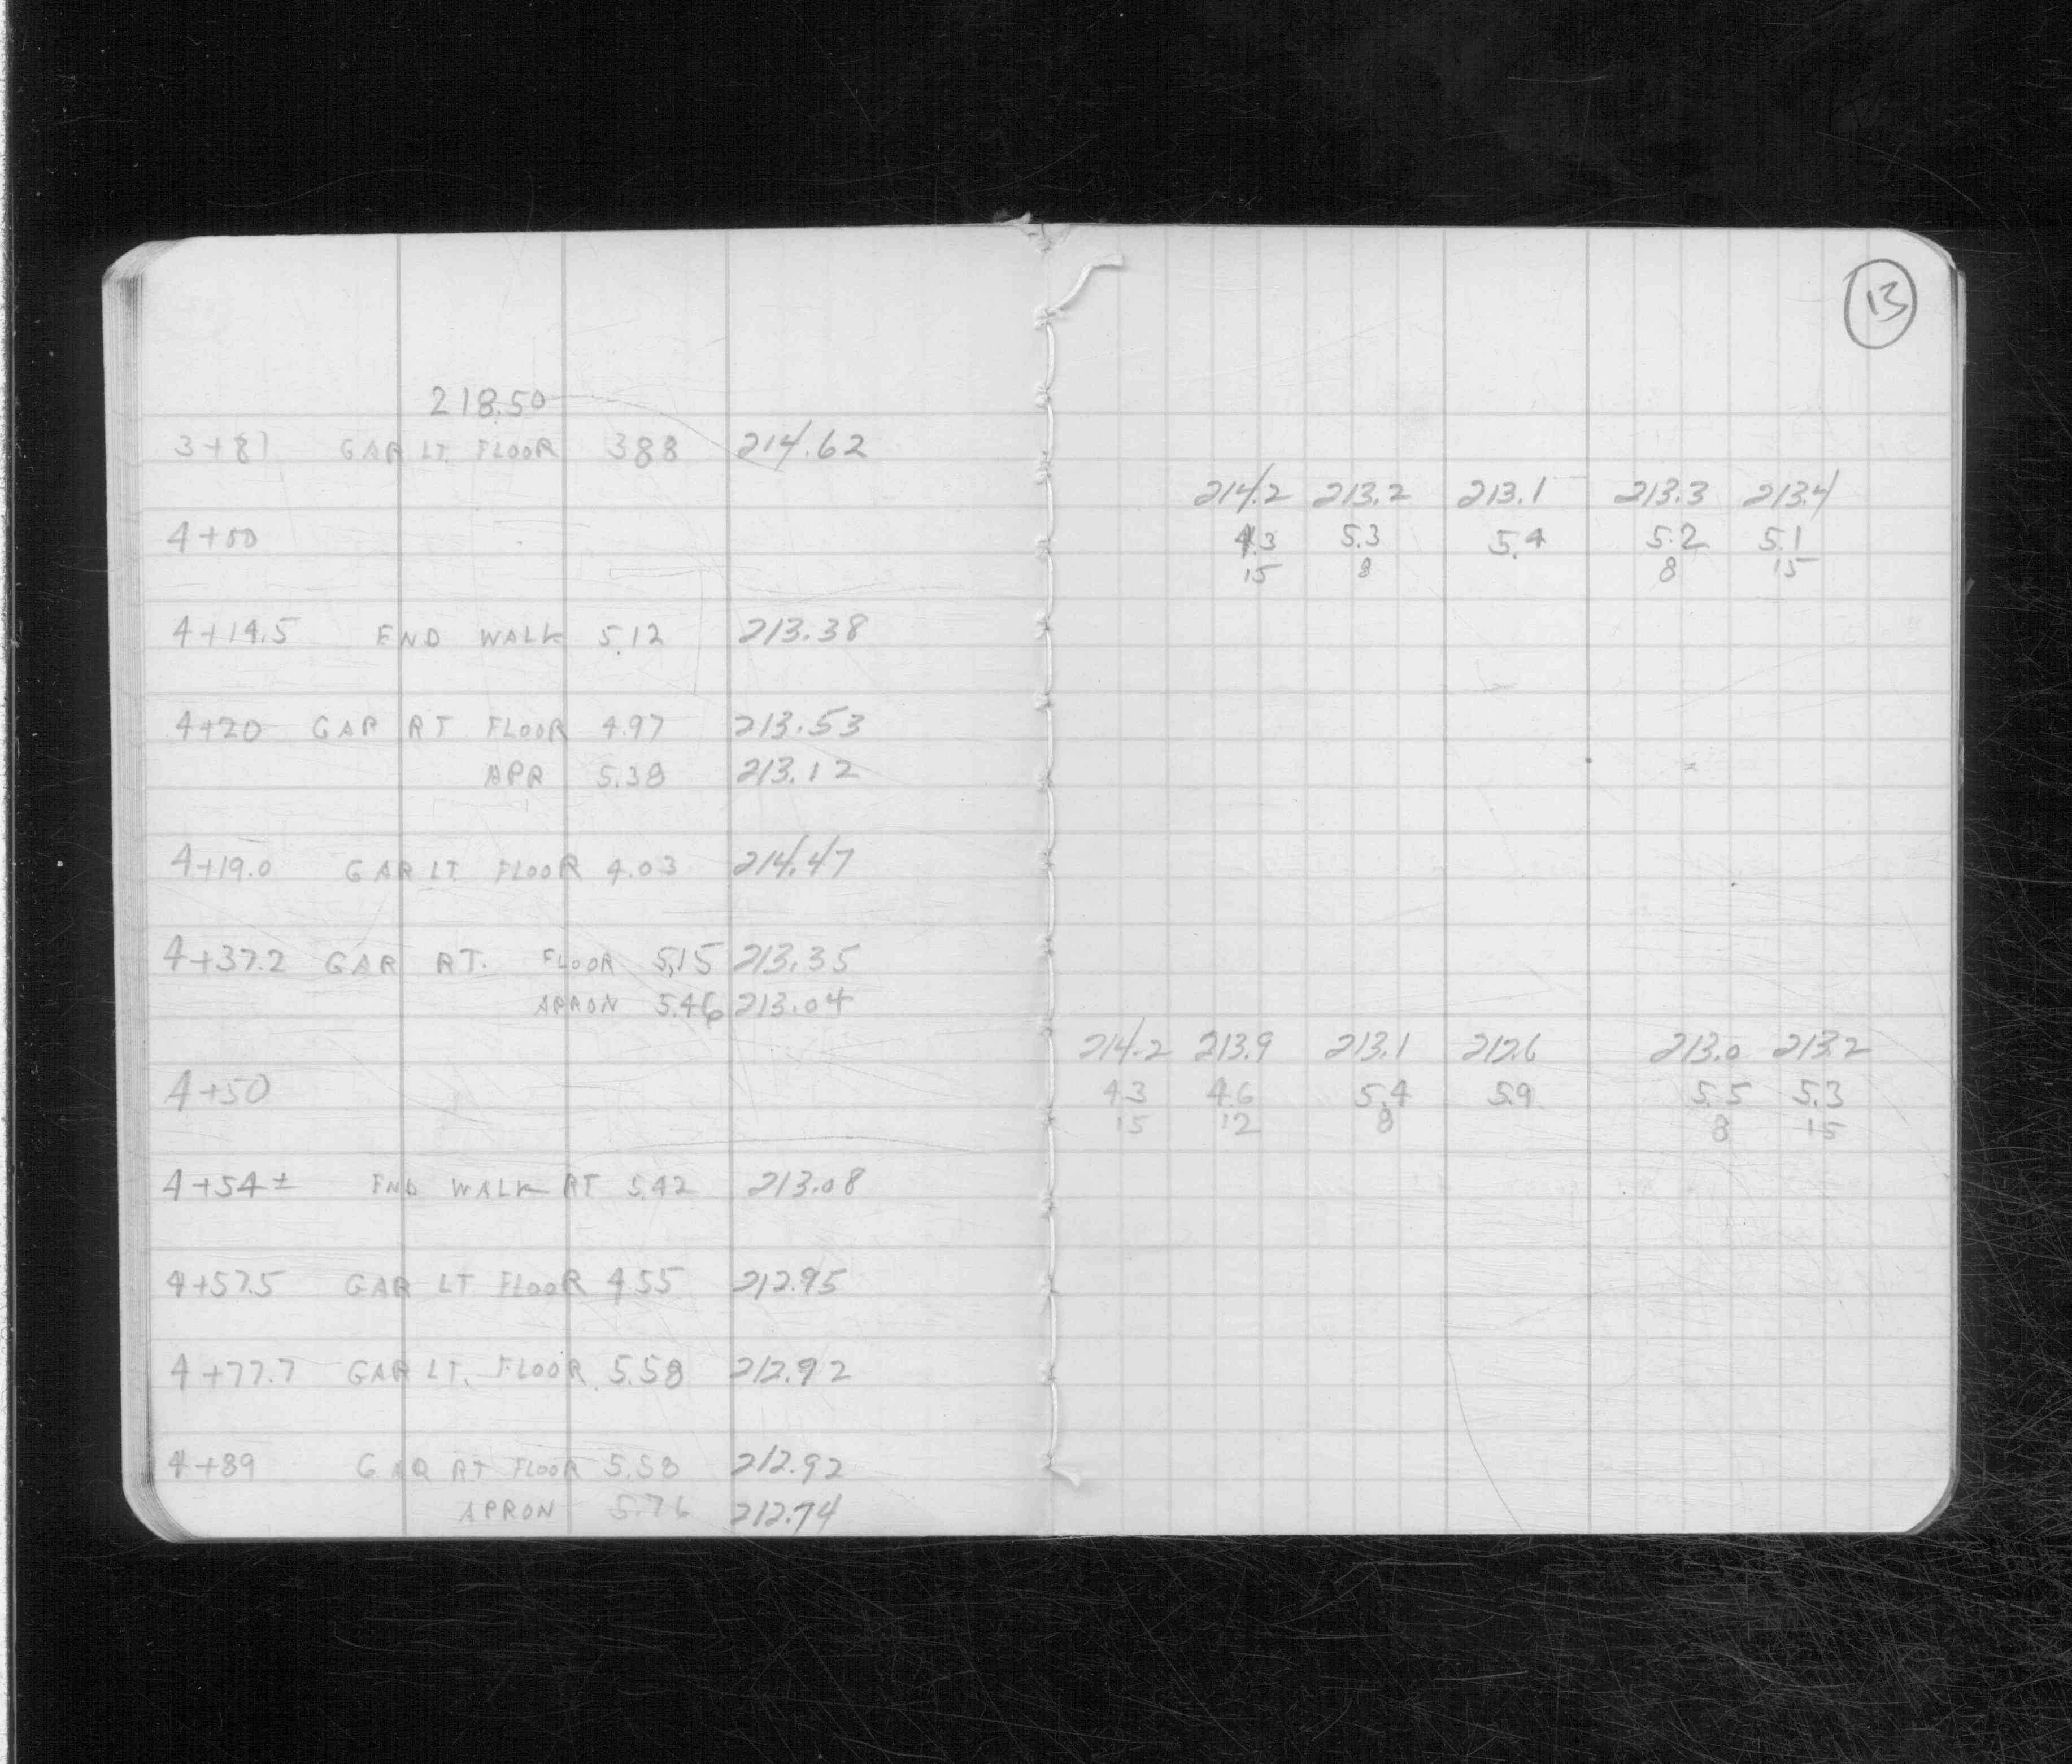 218.50
3+81 GAR LT. FLOOR 388 214.62
4+00
4+14.5 END WALK 5.12 213.38
4+20 GAR RT FLOOR 4.97 213.53
APR 5.38 213.12
4+19.0 GAR LT. FLOOR 4.03 214.47
4+37.2 GAR RT. FLOOR 5.15 213.35
APRON 5.46 213.04
4+50
4+54± END WALK RT 5.42 213.08
4+57.5 GAR LT FLOOR 4.55 212.95
4+77.7 GAR LT. FLOOR 5.58 212.92
4+89 GAR RT FLOOR 5.58 212.92
APRON 5.76 212.74
13
214.2 213.2 213.1 213.3 213.4
4.3 5.3 5.4 5.2 5.1
15 8 8 15
214.2 213.9 213.1 212.6 213.0 213.2
4.3 4.6 5.4 5.9 5.5 5.3
15 12 8 8 15